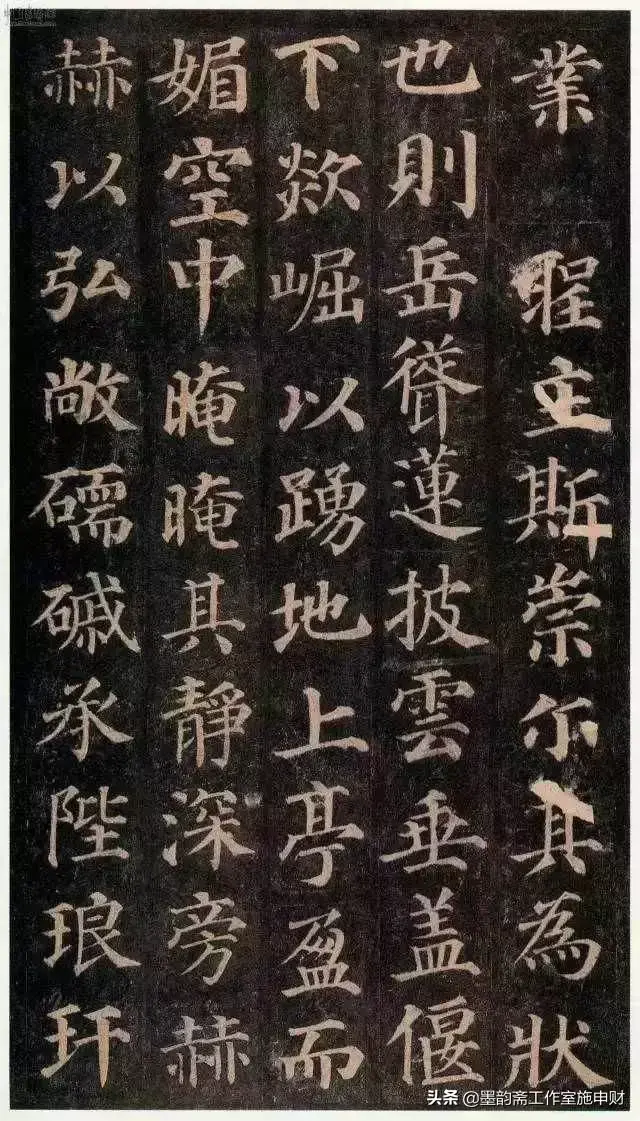 業 聖主斯崇尒其為狀
也則岳聳蓮披雲垂盖偃
下欻崛以踴地上亭盈而
媚空中晻晻其靜深旁赫
赫以弘敞礝磩承陛琅玕
头条 @墨韵斋工作室施申财